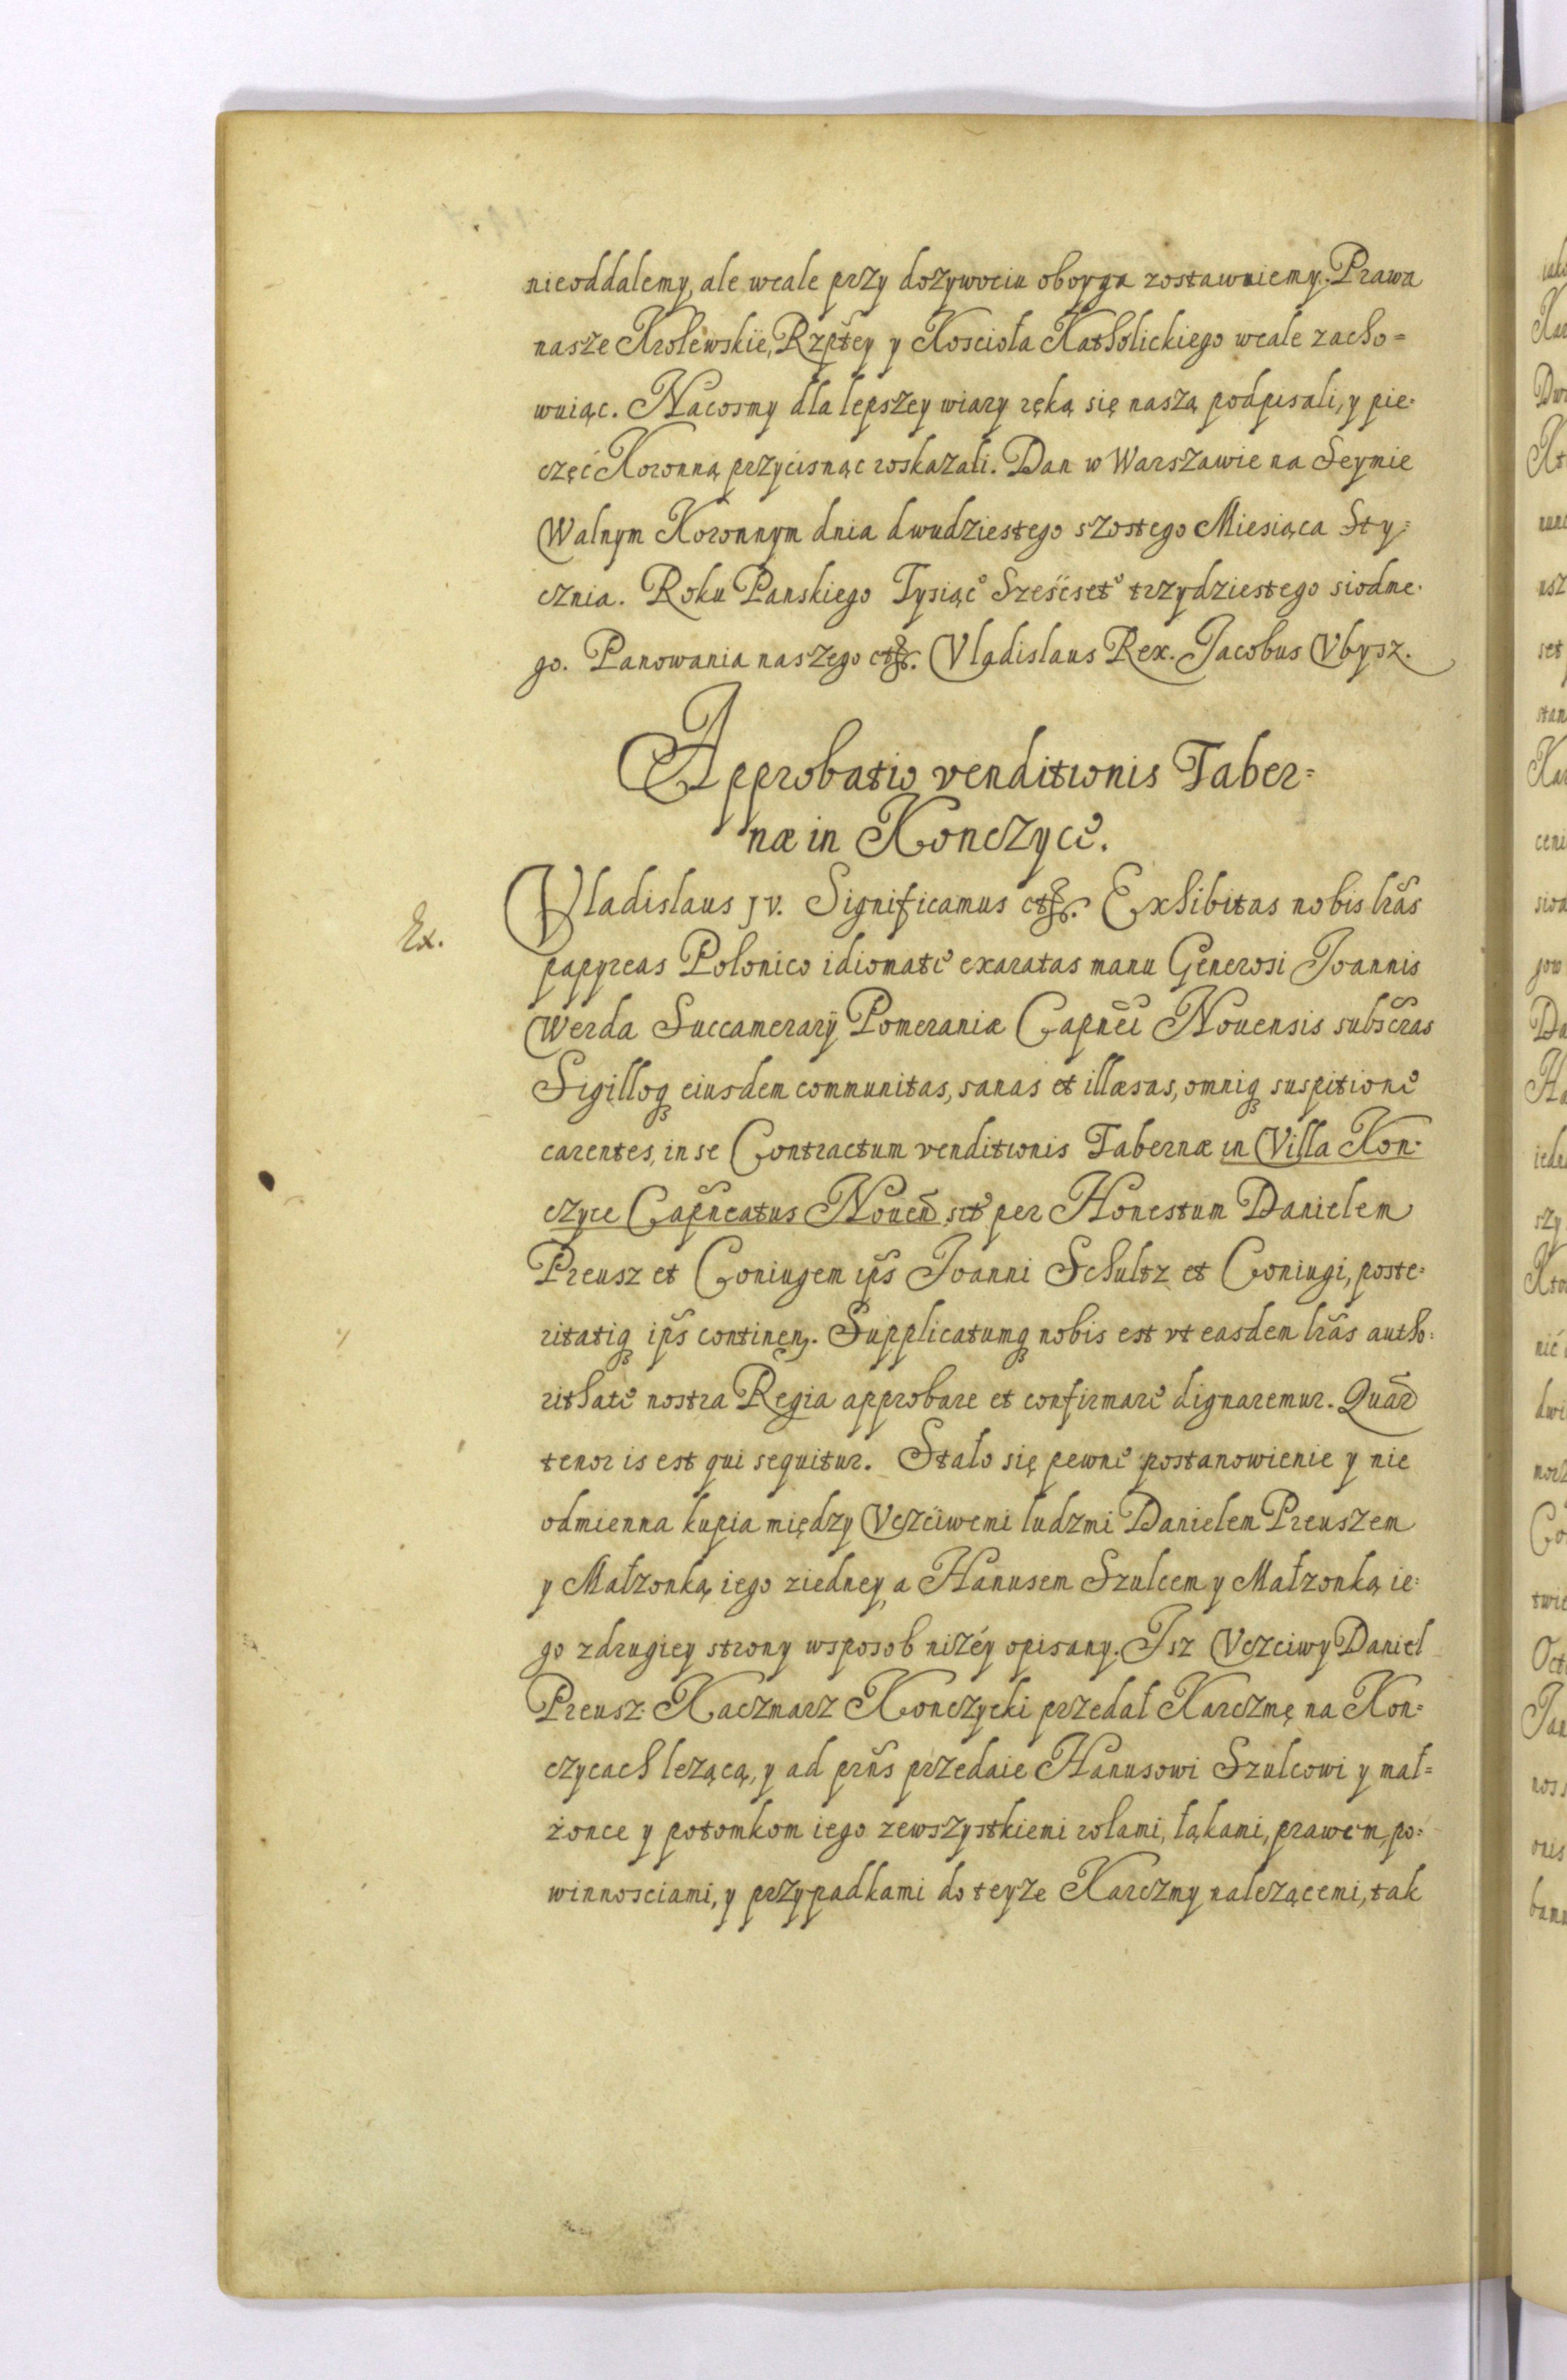 nieoddalemy, ale wcale przy dozywociu oboyga zostawuiemy. Prawa
nasze Krolewskie, Rzptey y Koscioła Katholickiego wcale zacho=
wuiąc. Nacosmy dla lepszey wiary ręką się naszą podpisali, y pie=
częć Koronną przycisnąc roskazali. Dan w Warszawie na Seymie
Walnym Koronnym dnia dwudziestego szostego Miesiąca Sty=
cznia. Roku Panskiego Tysiąc Sześcset trzydziestego siodme=
go. Panowania naszego etc. Vladislaus Rex. Jacobus Vbysz.
Approbatio venditionis Taber=
næ in Konczyce.
Ex.
Vladislaus JV. Significamus etc. Exhibitas nobis lrãs
papyreas Polonico idiomate exaratas manu Generosi Joannis
Werda Succamerarÿ Pomeraniæ Capnei Nouensis subscras
Sigilloq eiusdem communitas, sanas et illæsas, omniq suspitione
carentes, in se Contractum venditionis Tabernæ in Villa Kon=
czyce Capneatus Nouen sit per Honestum Danielem
Preusz et Coniugem ips Joanni Schultz et Coniugi, poste=
ritatiq ips continen. Supplicatumq nobis est vt easdem lrãs autho=
rithate nostra Regia approbare et confirmare dignaremur. Quar
tenor is est qui sequitur. Stało się pewne postanowienie y nie
odmienna kupia między Vczciwemi ludzmi Danielem Preuszem
y Małzonką iego ziedney, a Hanusem Szulcem y Małzonką ie=
go zdrugiey strony wsposob niżéy opisany. Jsz Vczciwy Daniel
Preusz Kaczmarz Konczycki przedał Karczmę na Kon=
czycach lezącą, y ad prñs przedaie Hanusowi Szulcowi y mał=
żonce y potomkom iego zewszystkiemi rolami, łąkami, prawem, po=
winnosciami, y przypadkami do teyze Karczmy nalezącemi, tak